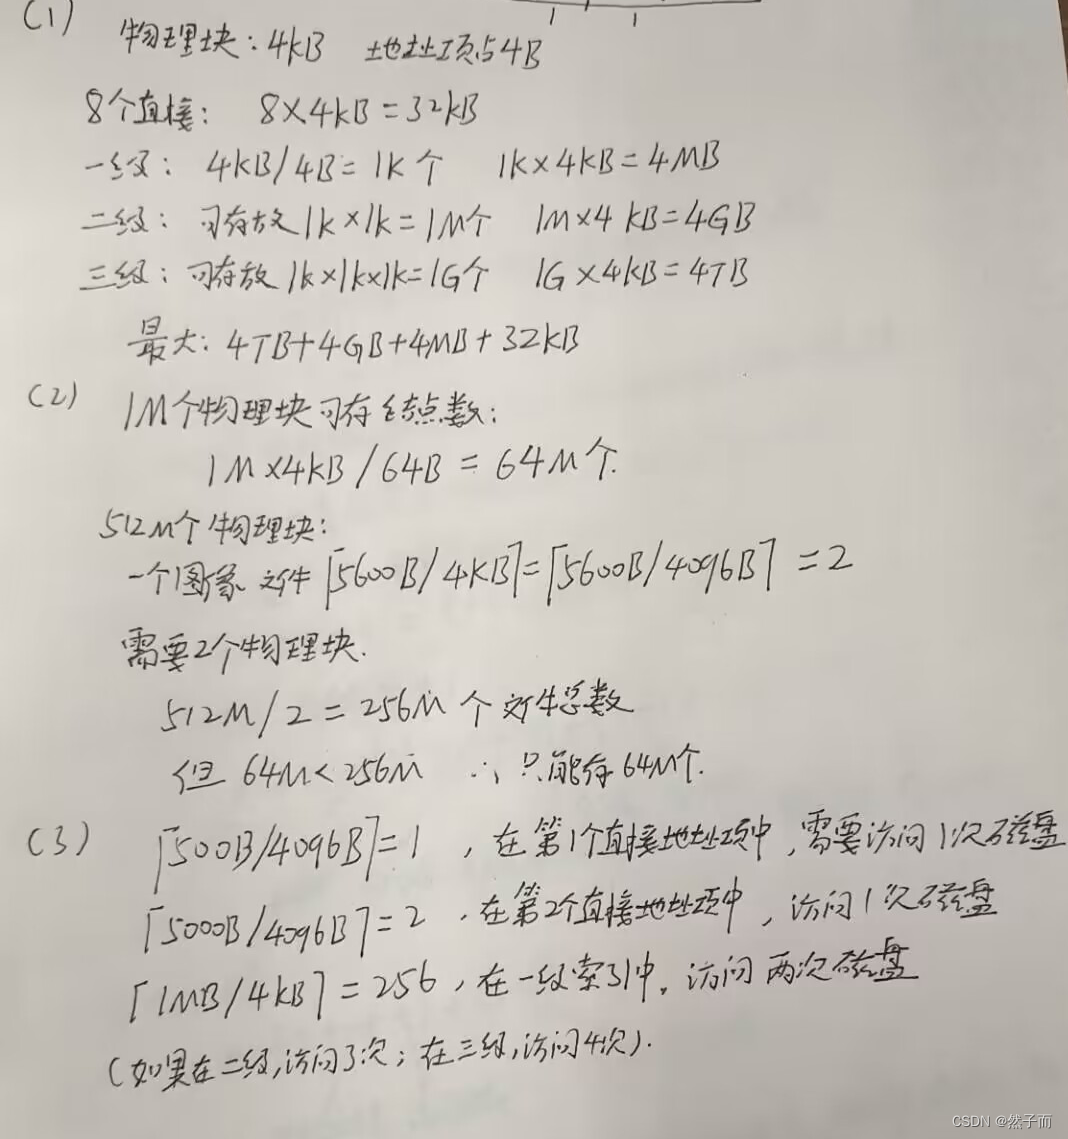 (1)
物理块:4KB 地址项占4B
8个直接: 8×4KB=32KB
一级: 4KB/4B=1K个 1K×4KB=4MB
二级: 可存放1K×1K=1M个 1M×4KB=4GB
三级: 可存放1K×1K×1K=1G个 1G×4KB=4TB
最大: 4TB+4GB+4MB+32KB
(2)
1M个物理块可存结点数:
1M×4KB/64B=64M个.
512M个物理块:
一个图象文件⌈5600B/4KB⌉=⌈5600B/4096B⌉=2
需要2个物理块.
512M/2=256M个文件总数
但64M<256M ∴只能存64M个.
(3) ⌈500B/4096B⌉=1,在第1个直接地址项中,需要访问1次磁盘
⌈5000B/4096B⌉=2,在第2个直接地址项中,访问1次磁盘
⌈1MB/4KB⌉=256,在一级索引中,访问两次磁盘
(如果在二级,访问3次;在三级,访问4次).
CSDN @然子而